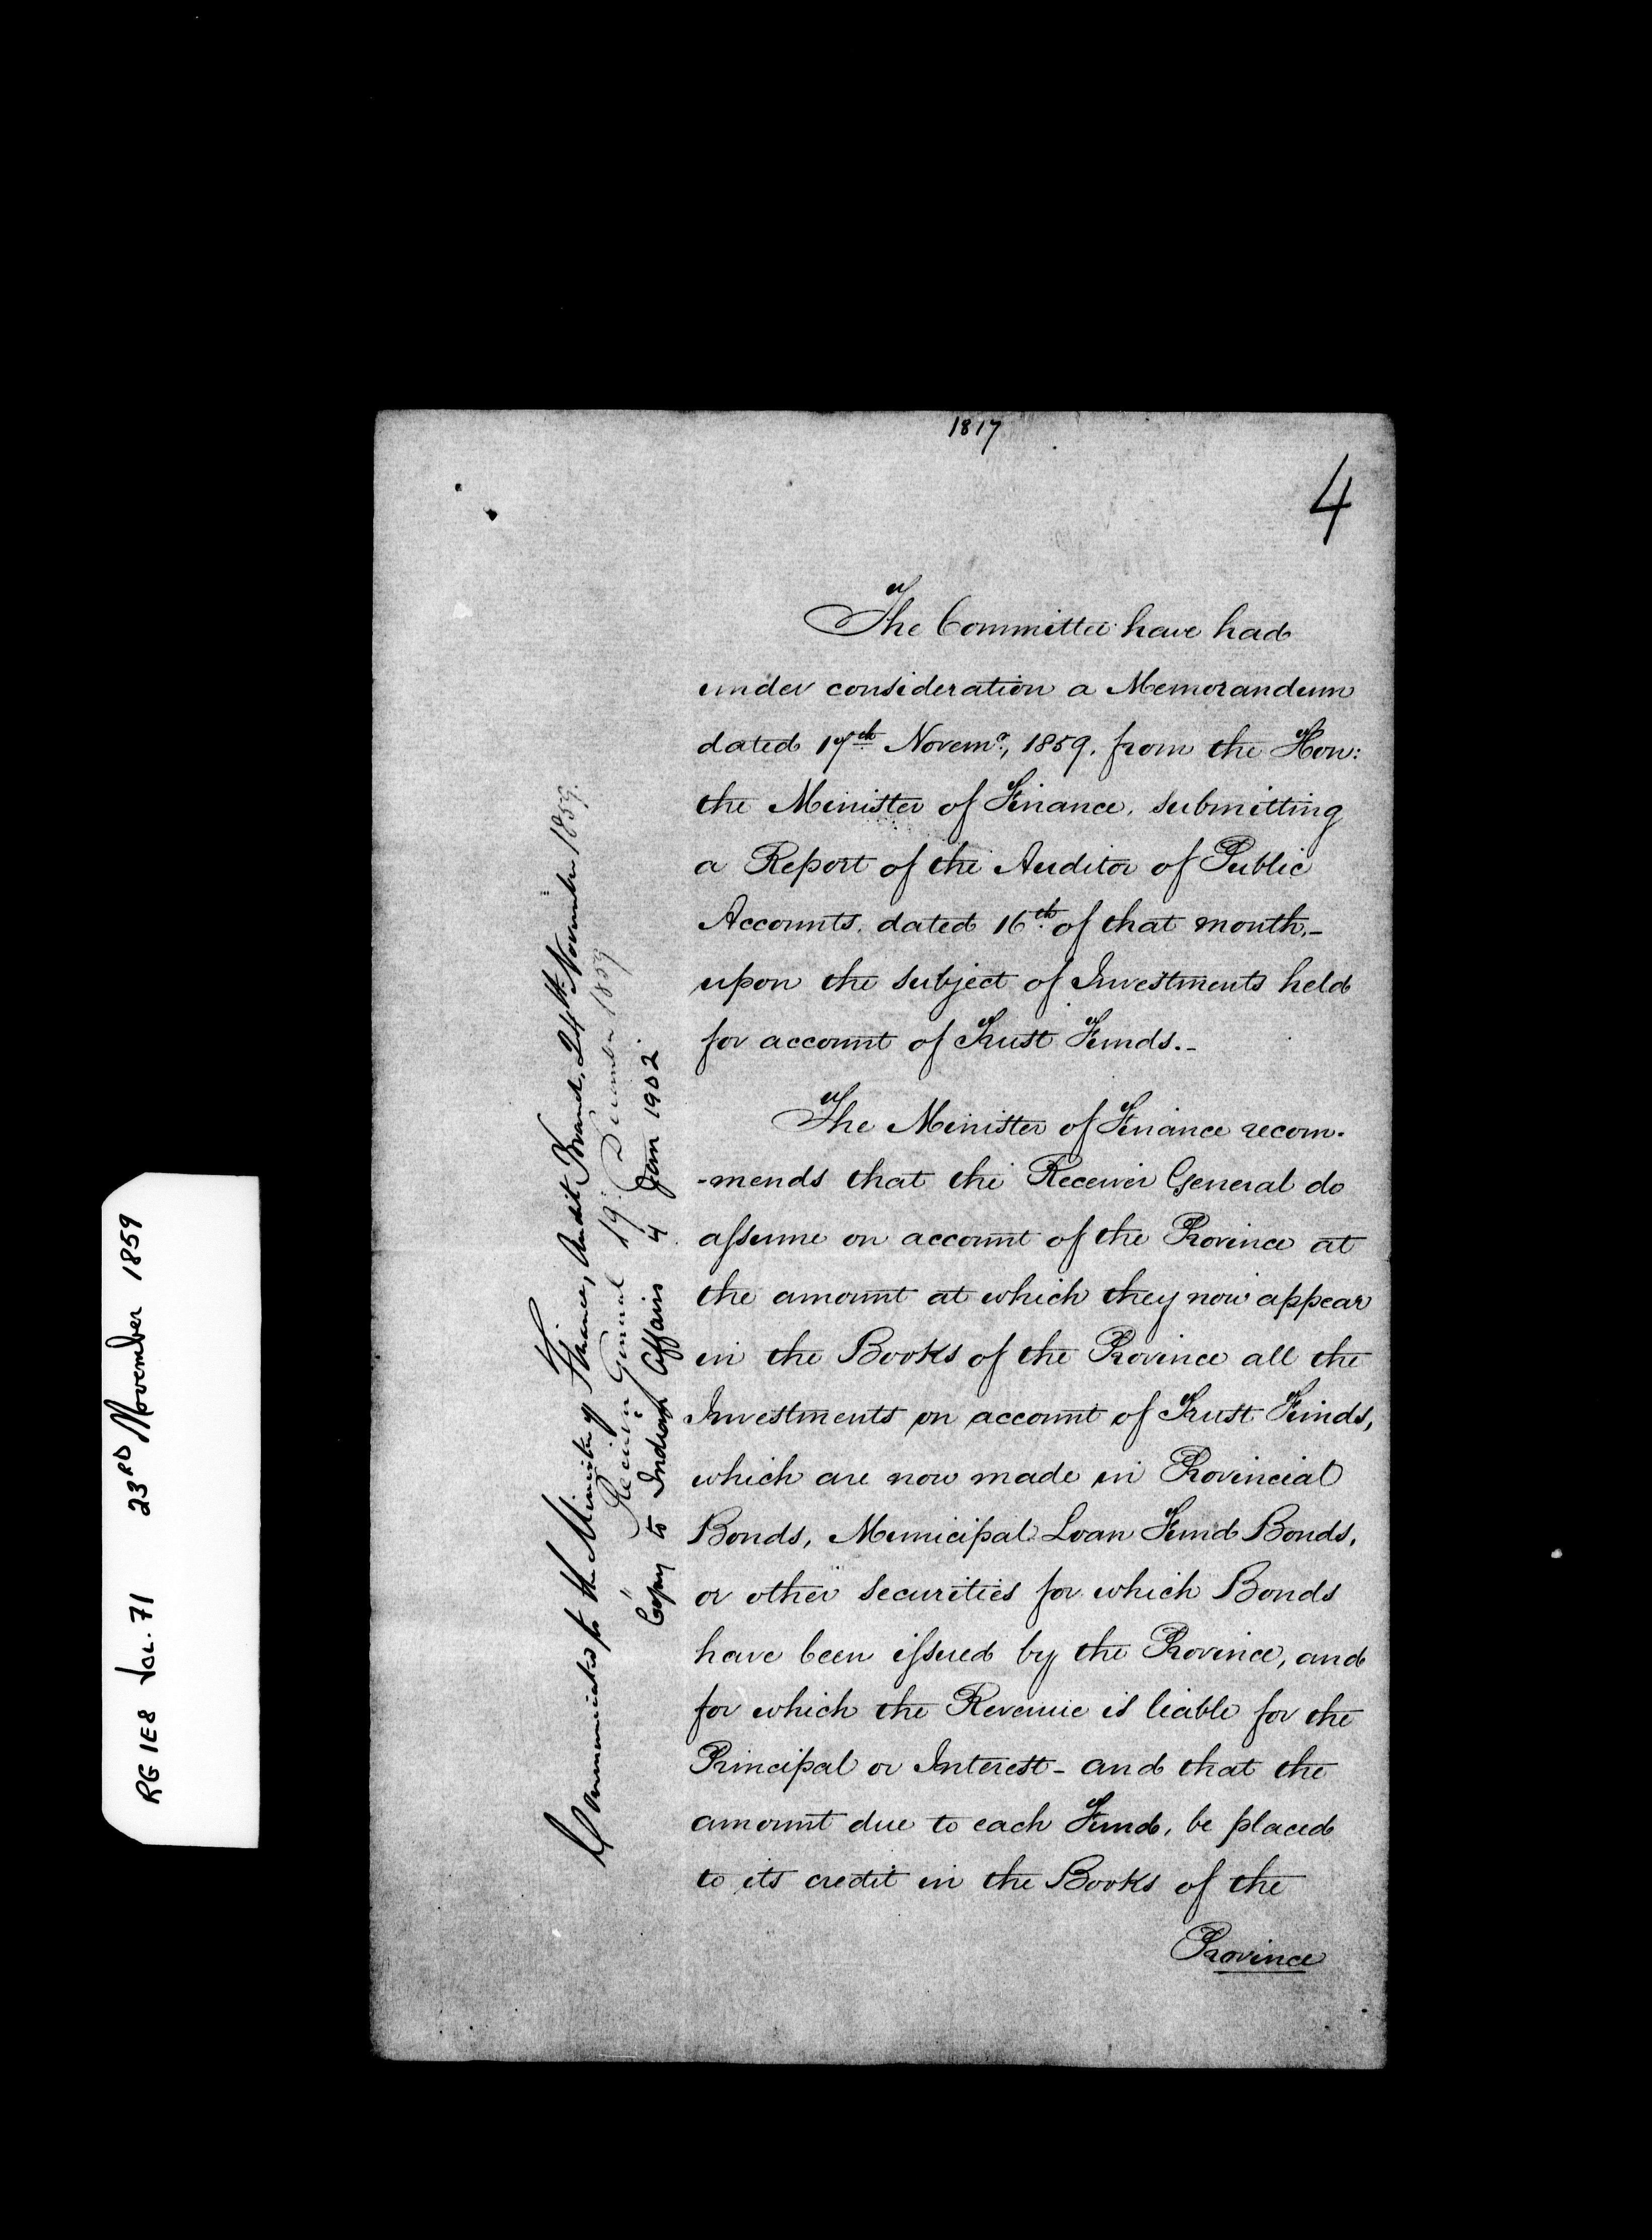 1817
4
The Committee have had
under consideration a Memorandum
dated 17th Novemr, 1859. from the Hon:
the Minister of Finance, submitting
a Report of the Auditor of Public
Accounts. dated 16th of that month.-
upon the subject of Investments held
for account of Trust Funds.-
The Minister of Finance recom-
-mends that the Receiver General do
assume on account of the Province at
the amount at which they now appear
in the Books of the Province all the
Investments on account of Trust Funds,
which are now made in Provincial
Bonds, Municipal Loan Fund Bonds,
or other securities for which Bonds
have been issued by the Province, and
for which the Revenue is liable for the
Principal or Interest - and that the
amount due to each Fund, be placed
to its credit in the Books of the
Province
Communicated to the Minister of Finance, Audit Branch, 24th November 1859.
" Receiver General 19 December 1859
Copy to Indian Affairs 4 Jan 1902.
RG 1E8 Vol. 71 23RD November 1859